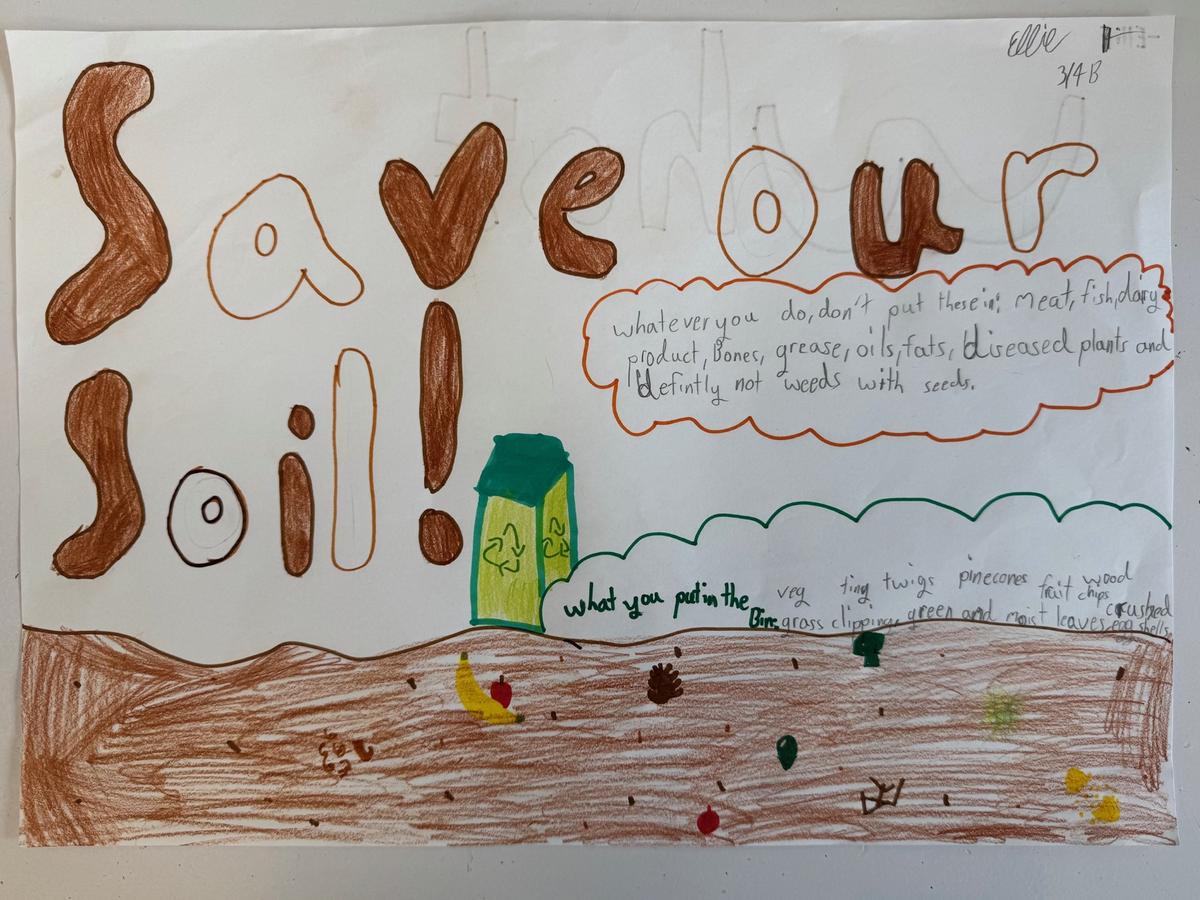 Ellie
3/4 B
Save our
Soil!
whatever you do, don't put these in; meat, fish, dairy
product, Bones, grease, oils, fats, diseased plants and
defintly not weeds with seeds.
what you put in the Bin:
veg ting twigs pinecones fruit wood chips
grass clipping, green and moist leaves, crushed egg shells